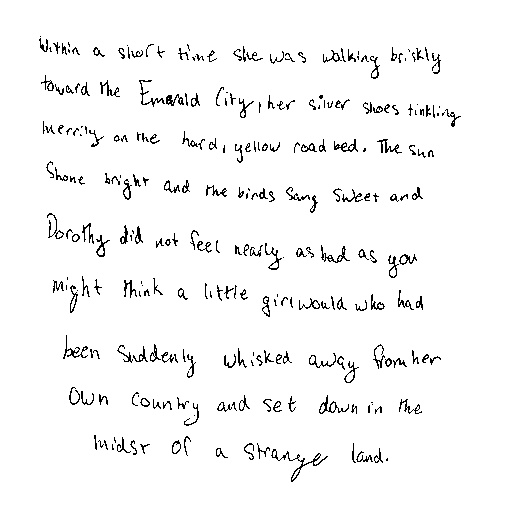 Within a short time she was walking briskly
toward the Emerald City, her silver shoes tinkling
merrily on the hard, yellow road bed. The sun
Shone bright and the birds Sang Sweet and
Dorothy did not feel nearly as bad as you
might think a little girl would who had
been Suddenly whisked away from her
Own Country and set down in the
midst of a strange land.